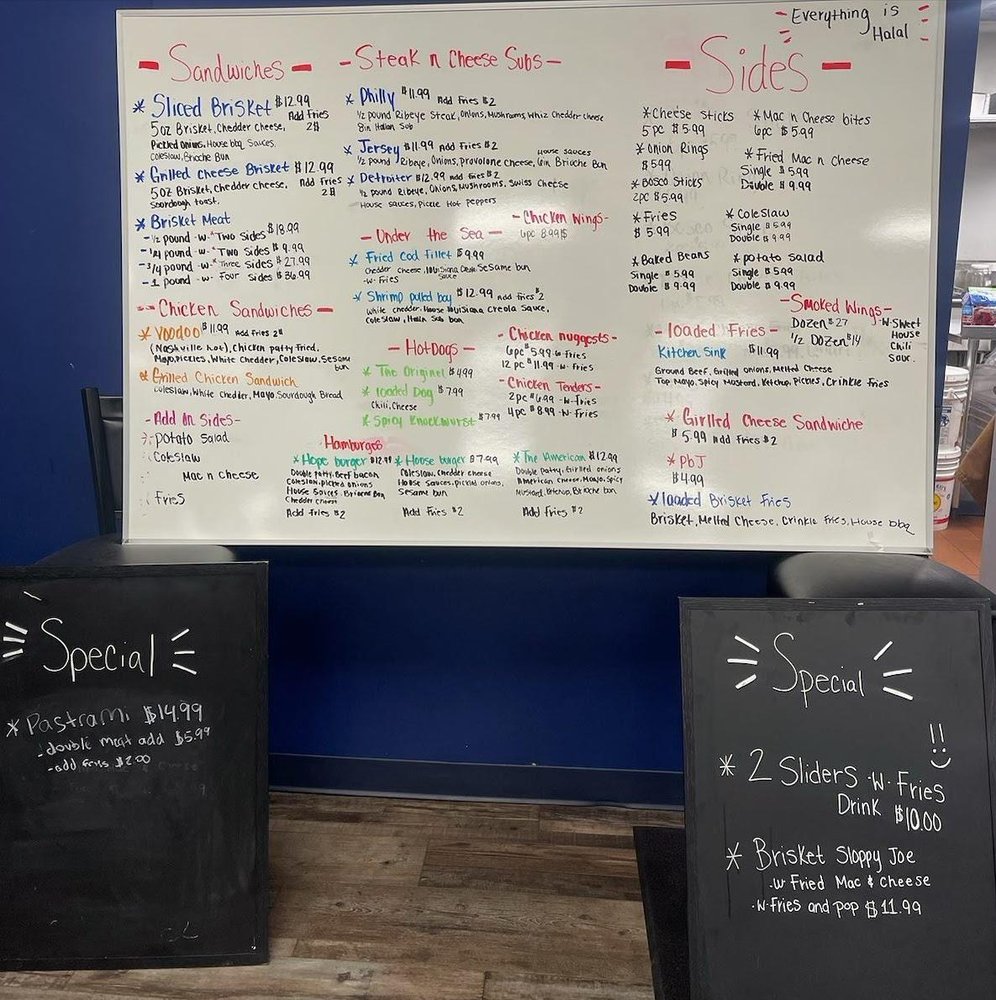 Everything is
Halal
- Sandwiches -
* Sliced Brisket $12.99
Add Fries
2$
5oz Brisket, Chedder Cheese,
Pickled Onions, House bbq Sauces.
Coleslaw, Brioche Bun
* Grilled Cheese Brisket $12.99
5oz Brisket, Chedder Cheese, Add Fries
2$
Sourdough toast.
* Brisket Meat
- 1/2 pound -w- Two Sides $18.99
- 1/4 pound -w- Two Sides $9.99
- 3/4 pound -w- Three Sides $27.99
- 1 pound -w- Four Sides $36.99
-- Chicken Sandwiches -
* Voodoo $11.99 Add Fries 2$
(Nashville hot), Chicken patty Fried,
Mayo, Pickles, White Chedder, Coleslaw, Sesame
bun
* Grilled Chicken Sandwich
Coleslaw, White Chedder, Mayo, Sourdough Bread
- Add On Sides -
: potato Salad
: Coleslaw
Mac n Cheese
: Fries
- Steak n Cheese Subs -
* Philly $11.99 Add Fries $2
1/2 pound Ribeye Steak, Onions, Mushrooms, Whiz Chedder Cheese
8in Italian Sub
* Jersey $11.99 Add Fries $2 House sauces
1/2 pound Ribeye, Onions, provolone Cheese, 6in Brioche Bun
* Detroiter $12.99 Add Fries $2
1/2 pound Ribeye, Onions, Mushrooms, Swiss Cheese
House Sauces, Pickle Hot Peppers
- Chicken Wings -
6pc 8.99$
- Under the Sea -
* Fried Cod Fillet $9.99
Chedder Cheese, louisiana Sauce, Sesame bun
-w- Fries
* Shrimp pulled boy $12.99 Add Fries $2
White Chedder, House louisiana Creola Sauce,
Coleslaw, Sub bun
- HotDogs -
* The Original $4.99
* loaded Dog $7.99
Chili, Cheese
* Spicy Knockwurst $7.99
- Chicken nuggests -
6pc $5.99 w- Fries
12 pc $11.99 -w- Fries
- Chicken Tenders -
2pc $6.99 -w- Fries
4pc $8.99 -w- Fries
Hamburges
* Hope burger $12.99
Double Patty, Beef bacon
Coleslaw, picked Onions
House Sauces, Brioche Bun
Chedder Cheese
Add Fries $2
* House burger $7.99
Coleslaw, Chedder cheese
House Sauces, pickled onions,
Sesame bun
Add Fries $2
* The American $12.99
Double patty, Grilled onions
American cheese, Mayo, Spicy
Mustard, Ketchup, Brioche bun
Add Fries $2
- Sides -
* Cheese Sticks
5 pc $5.99
* Mac n Cheese bites
6pc $5.99
* Onion Rings
$5.99
* Fried Mac n Cheese
Single $5.99
Double $9.99
* Bosco Sticks
2pc $5.99
* Fries
$5.99
* Coleslaw
Single $5.99
Double $9.99
* Baked Beans
Single $5.99
Double $9.99
* Potato Salad
Single $5.99
Double $9.99
- Smoked Wings -
Dozen $27
1/2 Dozen $14
-w- Sweet
House
Chili
Sauc.
- loaded Fries -
Kitchen Sink $11.99
Ground Beef, Grilled onions, Melted Cheese
Top Mayo, Spicy Mustard, Ketchup, Pickles, Crinkle Fries
* Girlled Cheese Sandwiche
$5.99 Add Fries $2
* PbJ
$4.99
* loaded Brisket Fries
Brisket, Melted Cheese, Crinkle Fries, House bbq
Special
* Pastrami $14.99
- double meat add $5.99
- add fries $2.00
Special
!!
* 2 Sliders -w- Fries
Drink $10.00
* Brisket Sloppy Joe
-w Fried Mac & Cheese
-w- Fries and pop $11.99